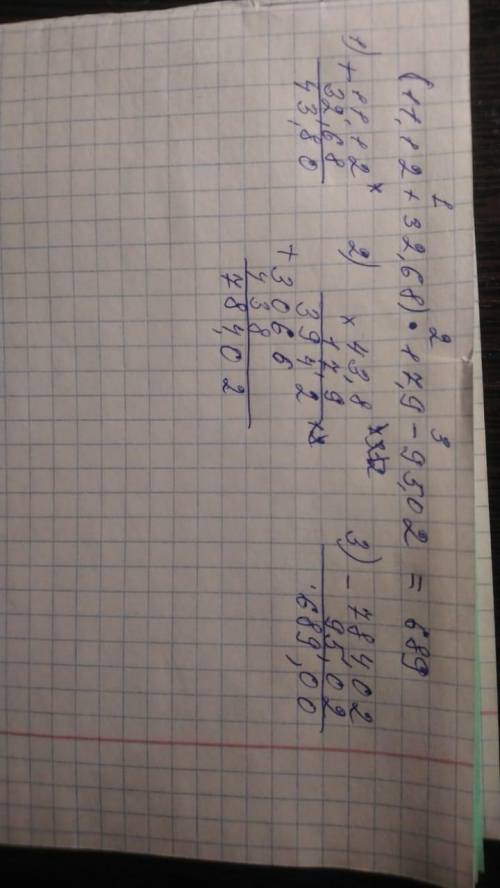 1 2 3
(11,12+32,68)·17,9-95,02 = 689
1) + 11,12
32,68
43,80
2) × 43,8
17,9
3942
+ 3066
438
784,02
3) - 784,02
95,02
689,00